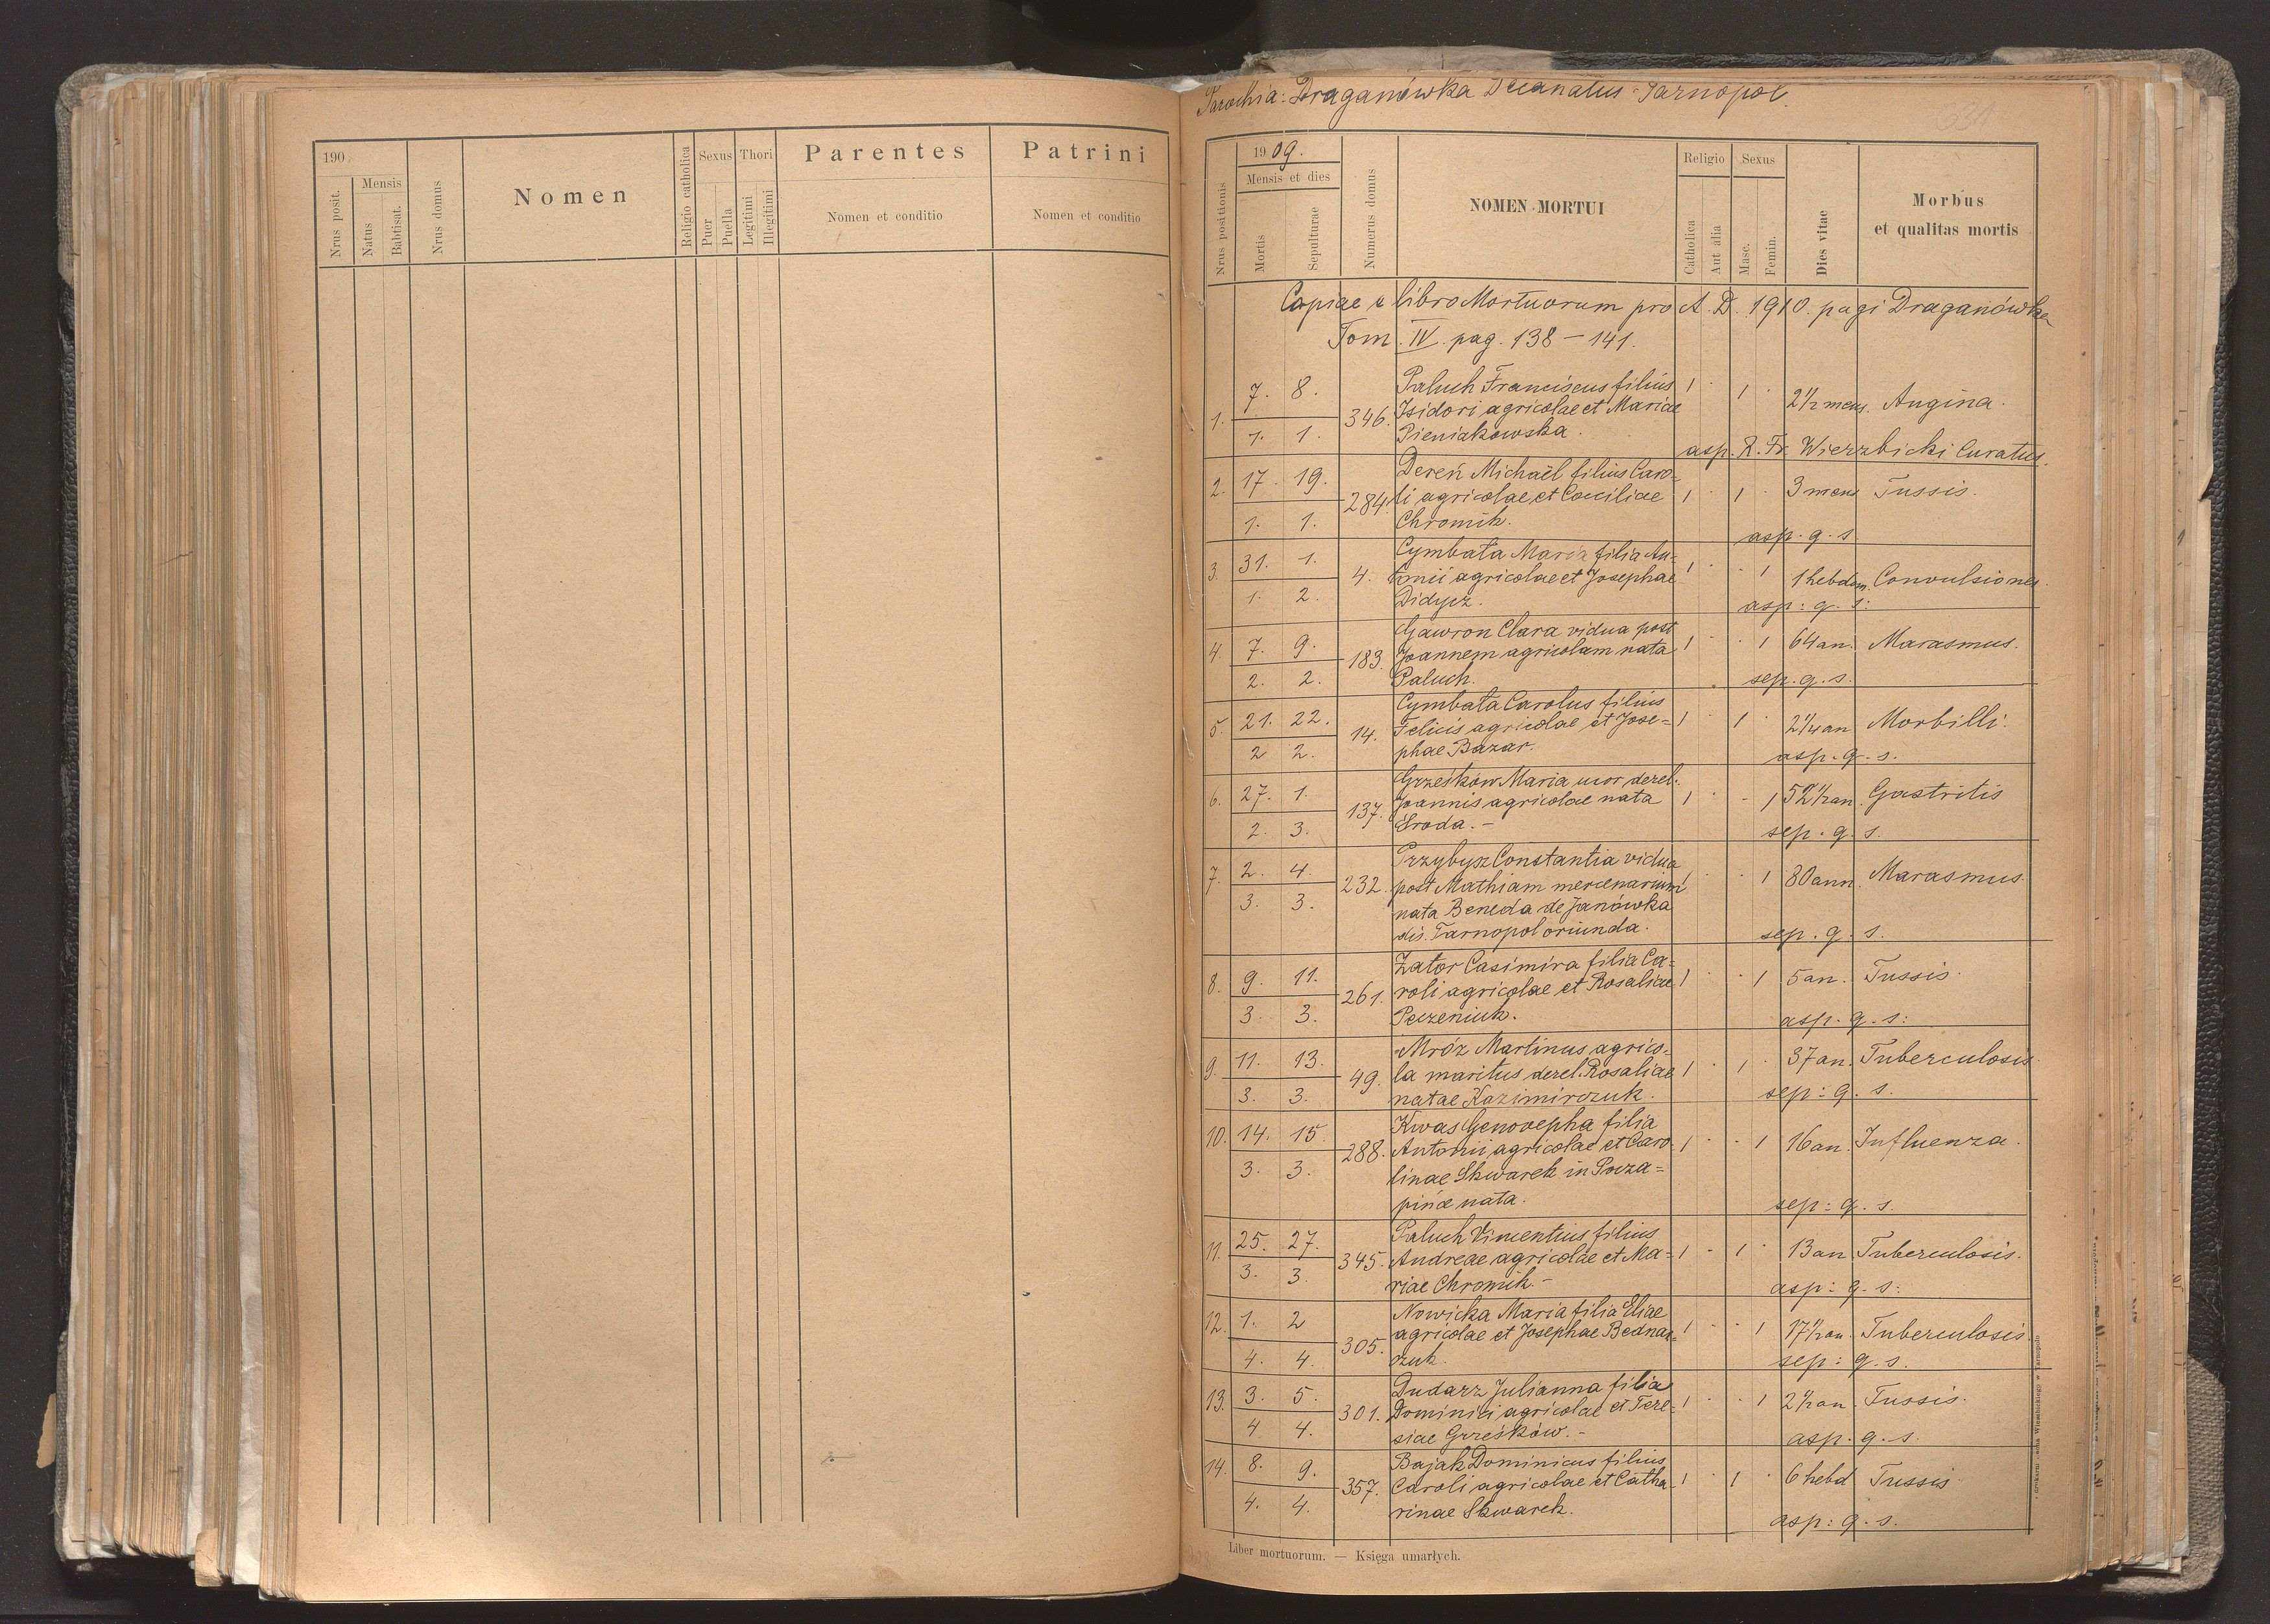 190
Nrus posit.
Mensis
Natus
Babtisat.
Nrus domus
Nomen
Religio catholica
Sexus
Puer
Puella
Thori
Legitimi
Illegitimi
Parentes
Nomen et conditio
Patrini
Nomen et conditio
Parochia: Draganówka Decanatus Tarnopol.
631
Nrus positionis
1909.
Mensis et dies
Mortis
Sepulturae
Numerus domus
NOMEN MORTUI
Religio
Catholica
Aut alia
Sexus
Masc.
Femin.
Dies vitae
Morbus
et qualitas mortis
Copiae e libro Mortuorum pro A. D. 1910. pagi Draganówka
Tom. IV. pag. 138 – 141.
1. 7. 8. 346. Paluch Franciscus filius 1 · 1 · 2½ mens. Angina.
1. 1. Isidori agricolae et Mariae
Pieniakowska.
asp. R. Fr. Wierzbicki Curatus.
2. 17. 19. 284. Dereń Michaël filius Caro=
1. 1. li agricolae et Coeciliae 1 · 1 · 3 mens Tussis.
Chromik.
asp. q. s
3. 31. 1. 4. Cymbała Maria filia An=
1. 2. tonii agricolae et Josephae 1 · · 1 1 hebdom. Convulsiones.
Didycz.
asp: q. s:
4. 7. 9. 183. Gawron Clara vidua post
2. 2. Joannem agricolam nata 1 · · 1 64 an. Marasmus.
Paluch.
sep. q. s.
5. 21. 22. 14. Cymbała Carolus filius
2 2. Felicis agricolae et Jose= 1 · 1 · 2¼ an Morbilli.
phae Bazar.
asp. q. s.
6. 27. 1. 137. Grześków Maria uxor derel.
2. 3. Joannis agricolae nata 1 · · 1 52½ an. Gastritis
Sroda. –
sep. q. s.
7. 2. 4. 232. Przybysz Constantia vidua
3. 3. post Mathiam mercenarium 1 · · 1 80 ann. Marasmus.
nata Beneda de Janówka
dis. Tarnopol oriunda.
sep. q. s.
8. 9. 11. 261. Zator Casimira filia Ca=
3. 3. roli agricolae et Rosaliae 1 · · 1 5 an. Tussis.
Peczeniuk.
asp. q. s:
9. 11. 13. 49. Mróz Martinus agrico=
3. 3. la maritus derel. Rosaliae 1 · 1 · 37 an. Tuberculosis.
natae Kazimirczuk.
sep: q. s.
10. 14. 15. 288. Kwas Genovepha filia
3. 3. Antonii agricolae et Caro= 1 · · 1 16 an. Influenza.
linae Skwarek in Pocza=
pińce nata.
sep: q. s.
11. 25. 27. 345. Paluch Vincentius filius
3. 3. Andreae agricolae et Ma= 1 · 1 · 13 an. Tuberculosis.
riae Chromik. –
asp: q. s:
12. 1. 2 305. Nowicka Maria filia Eliae
4. 4. agricolae et Josephae Bednar= 1 · · 1 17½ an. Tuberculosis.
czuk.
sep: q. s.
13. 3. 5. 301. Dudarz Julianna filia
4 4. Dominici agricolae et Tere= 1 · · 1 2½ an. Tussis.
siae Grześków. –
asp. q. s.
14. 8. 9. 357. Bajak Dominicus filius
4. 4. Caroli agricolae et Catha= 1 · 1 · 6 hebd Tussis
rinae Skwarek.
asp: q. s.
Liber mortuorum. — Księga umarłych.